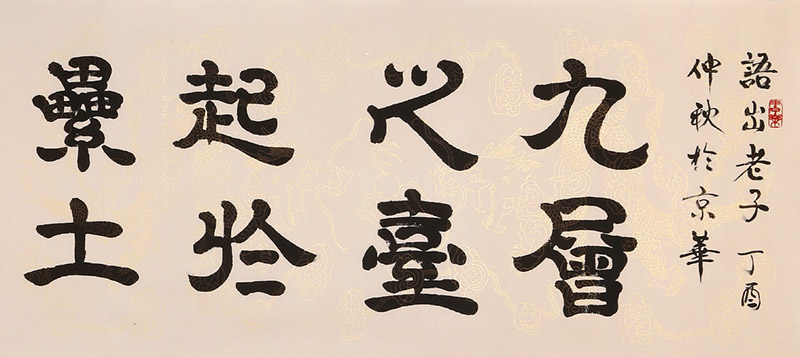 語出老子 丁酉
仲秋於京華
九層
之臺
起於
纍土